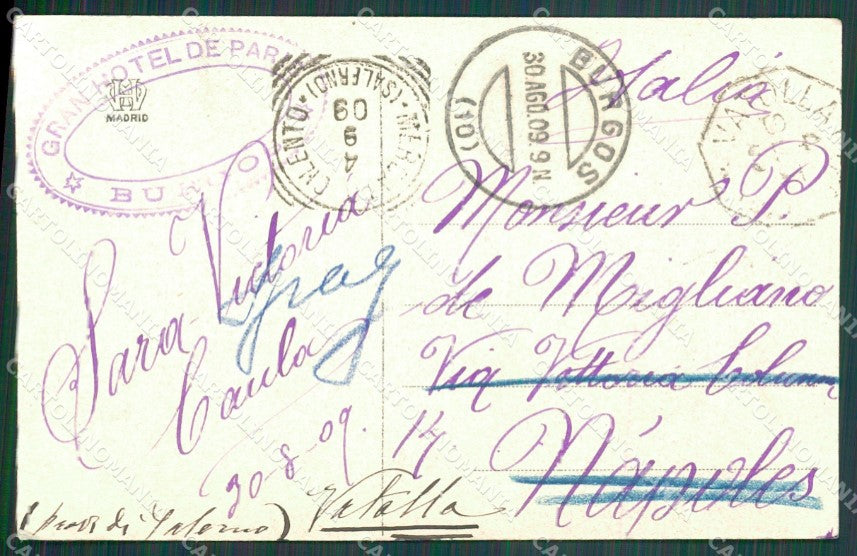 GRAN HOTEL DE PAR
MADRID
BURGOS
CILENTO * (SALERNO)
4 9 09
BURGOS
30.AGO.09.9N
(10)
Italia
Sara Victoria
Caula
30-8-09.
Monsieur P.
de Migliano
Via Vittoria Colonna
14
Nápoles
Vatolla
(prov di Salerno)
CARTOLINOMANIA